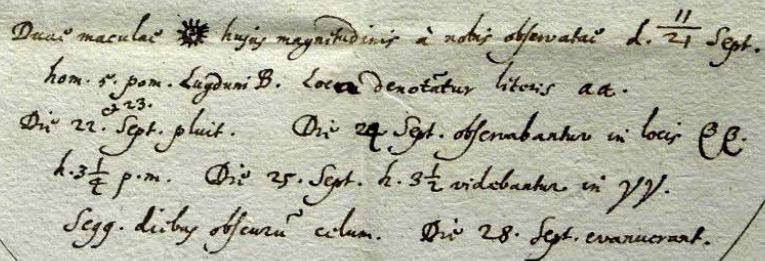 Duae maculae hujus magnitudinis à nobis observatae d. 11/21 Sept.
hora 5. pom. Lugduni B. Loca denotātur literis αα.
& 23.
Die 22. Sept. pluit. Die 24 Sept. observabantur in locis ββ.
h. 3 1/4 p.m. Die 25. Sept. h. 3 1/2 videbantur in γγ.
Seqq. diebus obscurū celum. Die 28. Sept. evanuerant.